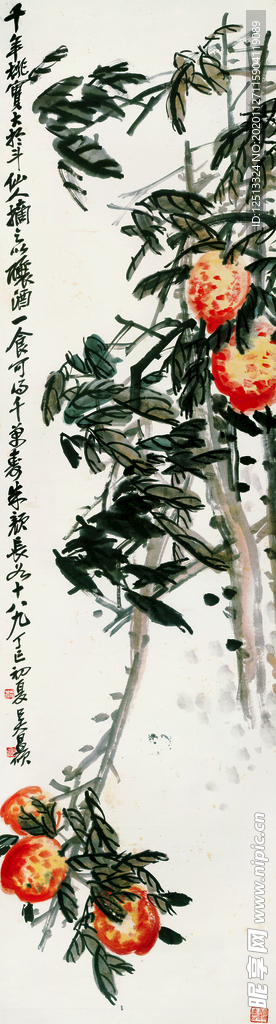 千年桃實大於斗仙人摘之以釀酒一食可得千萬壽朱顏長如十八九丁巳初夏吳昌碩
ID:12513324 NO:20201127115904119089
昵享网 www.nipic.cn